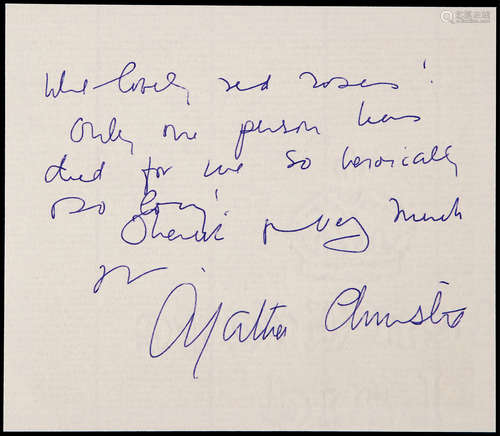 What lovely red roses!
Only one person has
died for me so heroically
so long!
Thank you very much
Agatha Christie